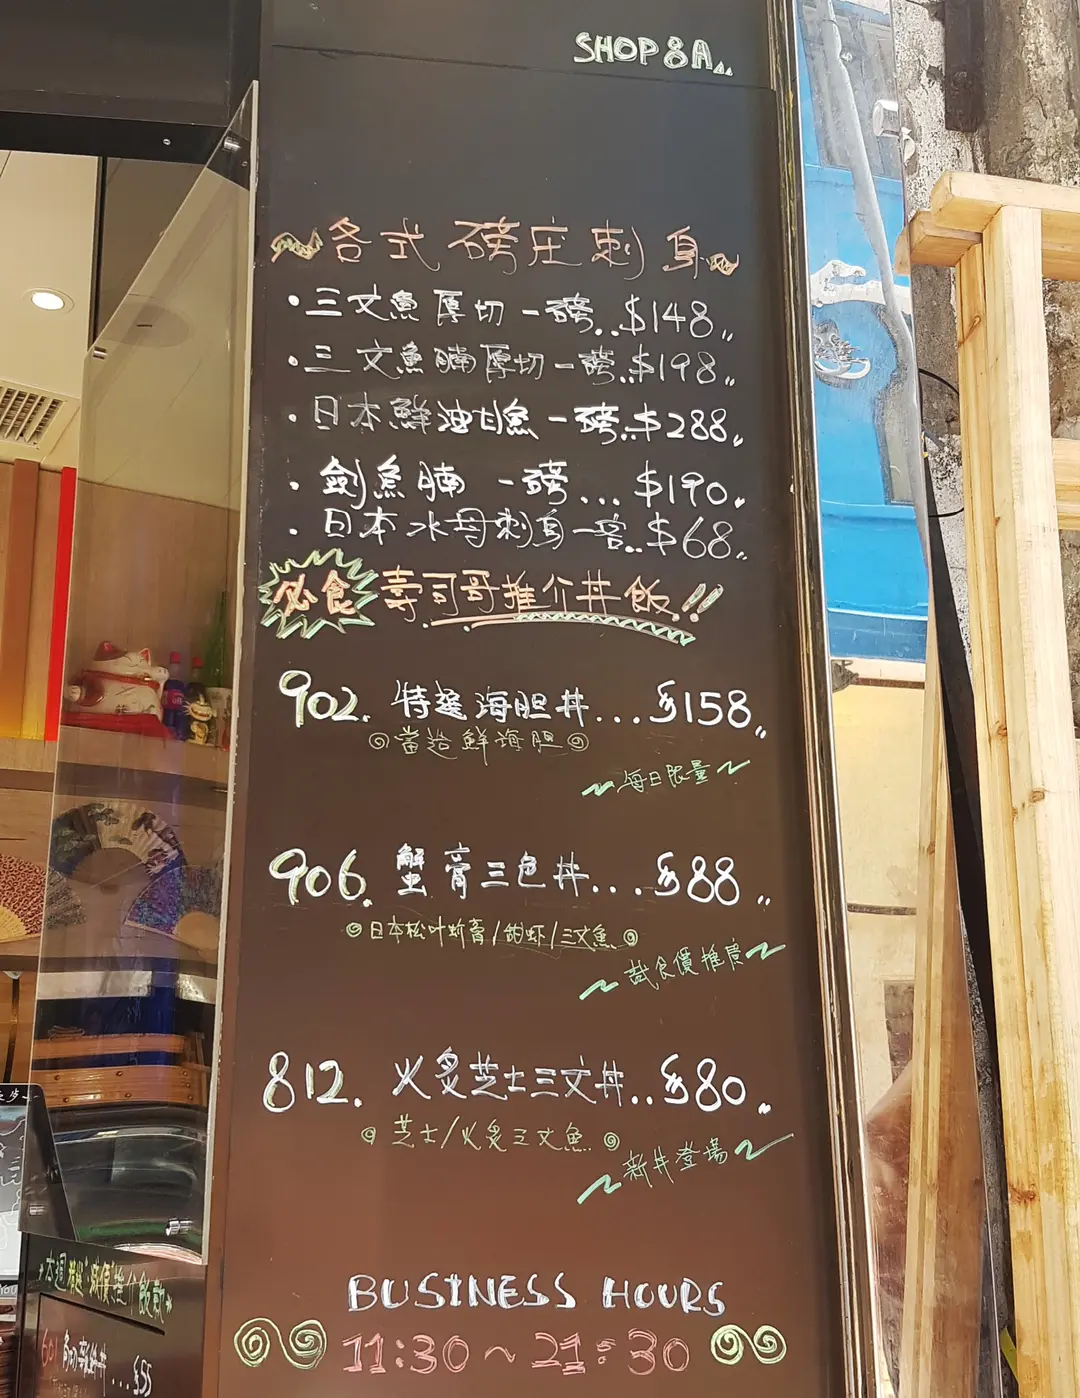 SHOP 8A
各式磅庄刺身
·三文魚厚切一磅..$148,,
·三文魚腩厚切一磅..$198,,
·日本鮮油甘魚一磅..$288,,
·劍魚腩 一磅...$190,
·日本水母刺身一客..$68,,
必食 壽司哥推介丼飯!!
902. 特選海胆丼...$158,,
當造鮮海胆
每日限量
906. 蟹膏三色丼...$88,,
日本松叶蚧膏/甜虾/三文魚
試食價推廣
812. 火炙芝士三文丼..$80,,
芝士/火炙三文魚
新丼登場
BUSINESS HOURS
11:30~21:30
本週 推介飯款
601 丼...$55